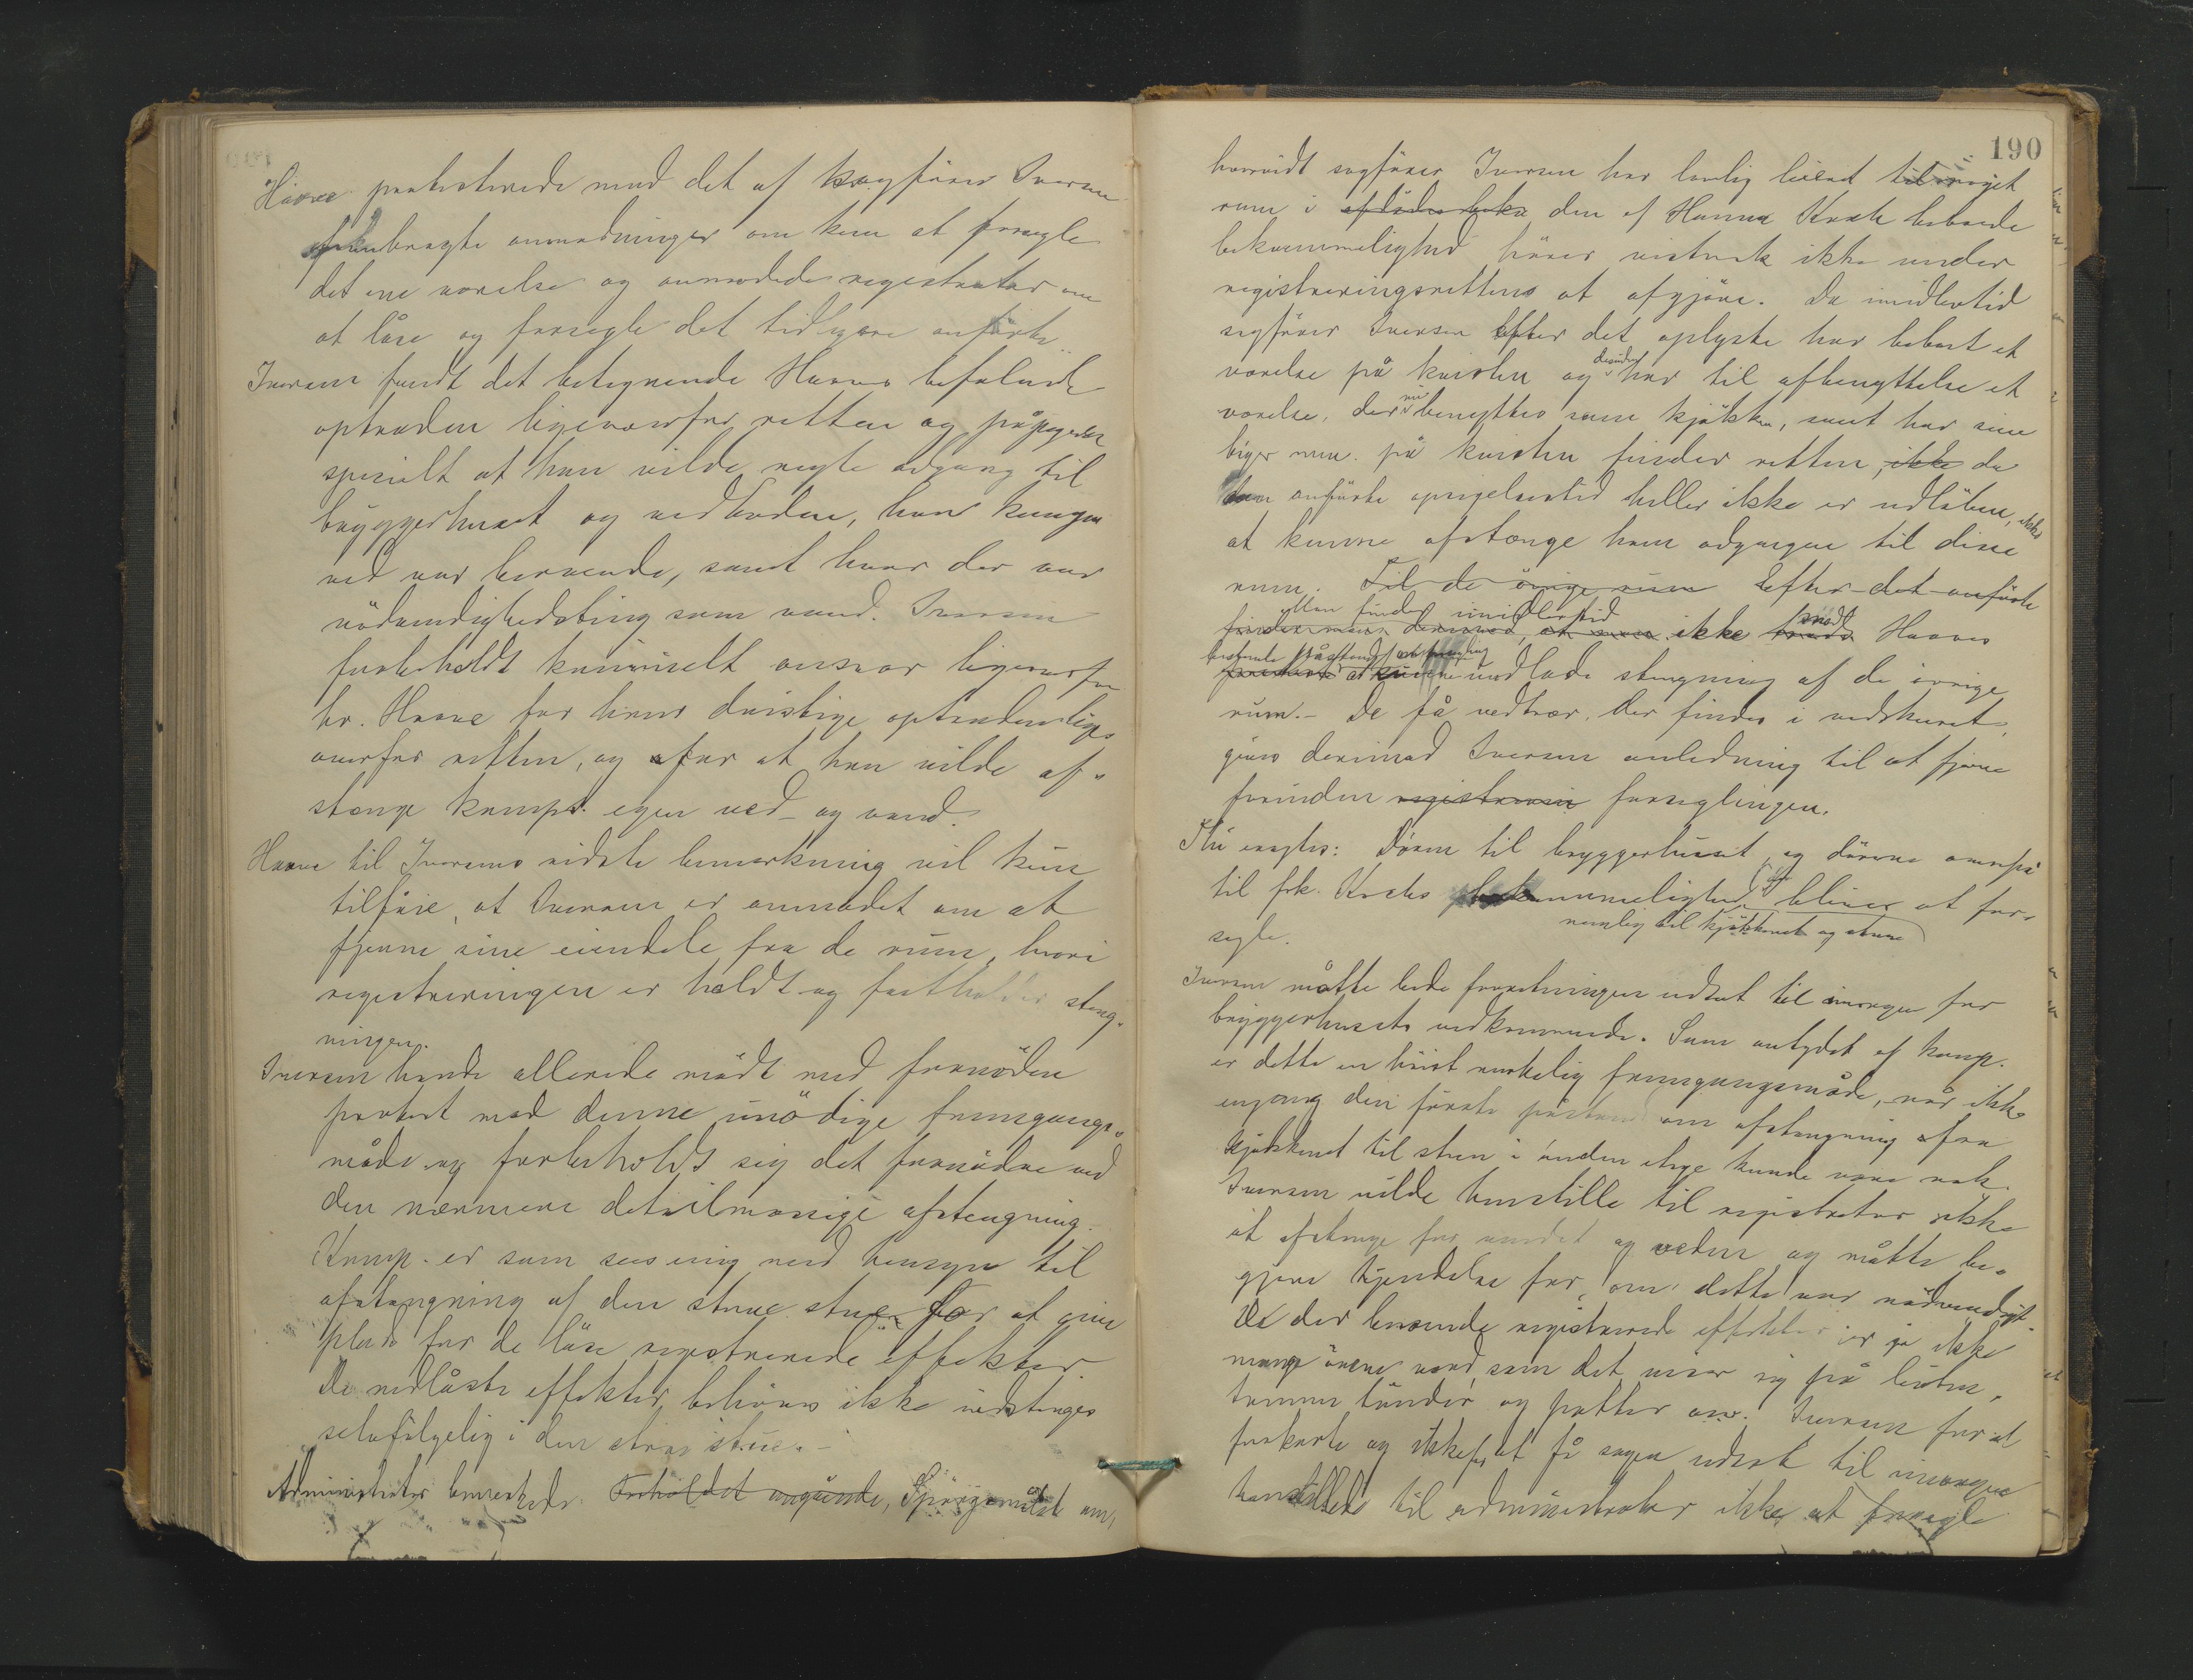 Haave protesterede mod det af sagfører Iversen
frembragte anmodninger om kun at forsegle
det ene værelse og anmodede registrator om
at låse og forsegle det tidligere anførte
Iversen fandt det betegnende Haaves befalende
optræden ligeoverfor retten og påpegede
specielt at han vilde negte adgang til
bryggerhuset og vedboden, hvor kompn
ved var beroende, samt hvor der var
nödvendighedsting som vand. Iversen
forbeholdt kriminelt ansvar ligeoverfor
hr. Haave for hans dristige optræden lige
overfor retten, og for at han vilde af-
stænge komp.s egen ved- og vand.
Haave til Iversens sidste bemærkning vil kun
tilføie, at Iversen er anmodet om at
fjerne sine eiendele fra de rum, hvori
registreringen er holdt og fastholder steng-
ningen.
Iversen havde allerede mödt med fornöden
protest mod denne unödige fremgangs-
måde og forbeholdt sig det fornödne ved
den nærmere detailmæssige afstengning.
Komp. er som sees enig med hensyn til
afstængning af den store stue for at give
plads for de löse registrerede effekter.
De nedlåste effekter behöves ikke indstenges
selvfölgelig i den store stue.-
Administrator bemerkede: Forholdet angående, Spörgsmålet om,
190
hvorvidt sagfører Iversen har lovlig leiet til noget
rum i afdødes boka den af Hanna Krohs beboede
bekvemmelighed hörer vistnok ikke under
registreringsrettens at afgjöre. Da imidlertid
sagfører Iversen efter det oplyste har beboet et
værelse på kvisten og desuden har til afbenyttelse et
værelse, der nu benyttes som kjökken, samt har sine
böger m.m. på kvisten finder retten, ikke da
den anførte opsigelsestid heller ikke er udlöben, ikke
at kunne afstænge ham adgangen til disse
rum. Til de övrige rum Efter det anførte
Man finder imidlertid
finder man derimod ikke mod Haaves
bestemte påstand
at kunne undlade stengning af de övrige
rum.- De få vedtrær, der findes i vedskuret,
gives derimod Iversen anledning til at fjerne
forinden registrerin forseglingen.
Thi eragtes: Dören til bryggerhuset og dörene ovenpå
til frk. Krohs bekvemmelighed bliver at for-
nemlig til kjökkenet og stuen
segle.
Iversen måtte bede forretningen udsat til imorgen for
bryggerhusets vedkommende. Som antydet af komp.
er dette en höist merkelig fremgangsmåde, når ikke
engang den første påstand om afstengning fra
kjökkenet til stuen i anden etage kunde være nok.
Iversen vilde henstille til registrator ikke
at afstenge for vandet og veden og måtte be-
gjere kjendelse for, om dette var nödvendigt.
De der beroende registrerede effekter er jo ikke
mange örene værd, som det viser sig på listen,
tomme tönder og potter osv. Iversen for at
forkorte og ikke for at få sagen udsat til imorgen
henstillede til administrator ikke at forsegle